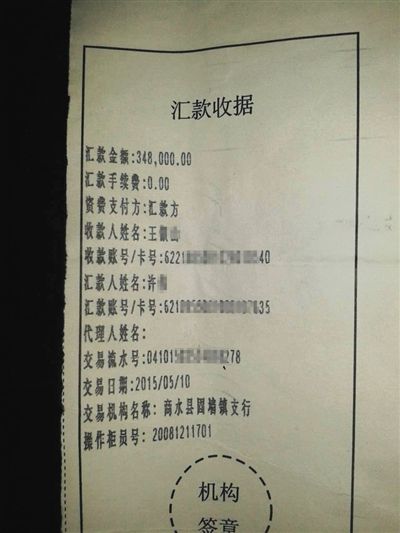 汇款收据
汇款金额:348,000.00
汇款手续费:0.00
资费支付方:汇款方
收款人姓名:王
收款账号/卡号:6221 40
汇款人姓名:许
汇款账号/卡号:621 35
代理人姓名:
交易流水号:04101 278
交易日期:2015/05/10
交易机构名称: 商水县固墙镇支行
操作柜员号: 20081211701
机构
签章